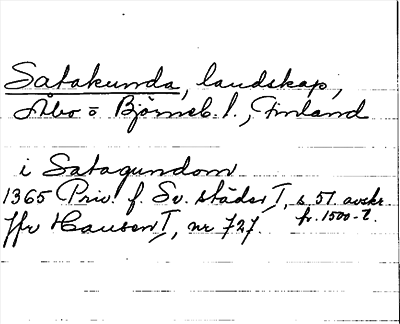 Satakunda, landskap,
Åbo o Björneb. l., Finland
i Satagundom
1365 Priv. f. Sv. städer I, s. 51. avskr.
fr. 1500-t.
Jfr Hausen I, nr 727.